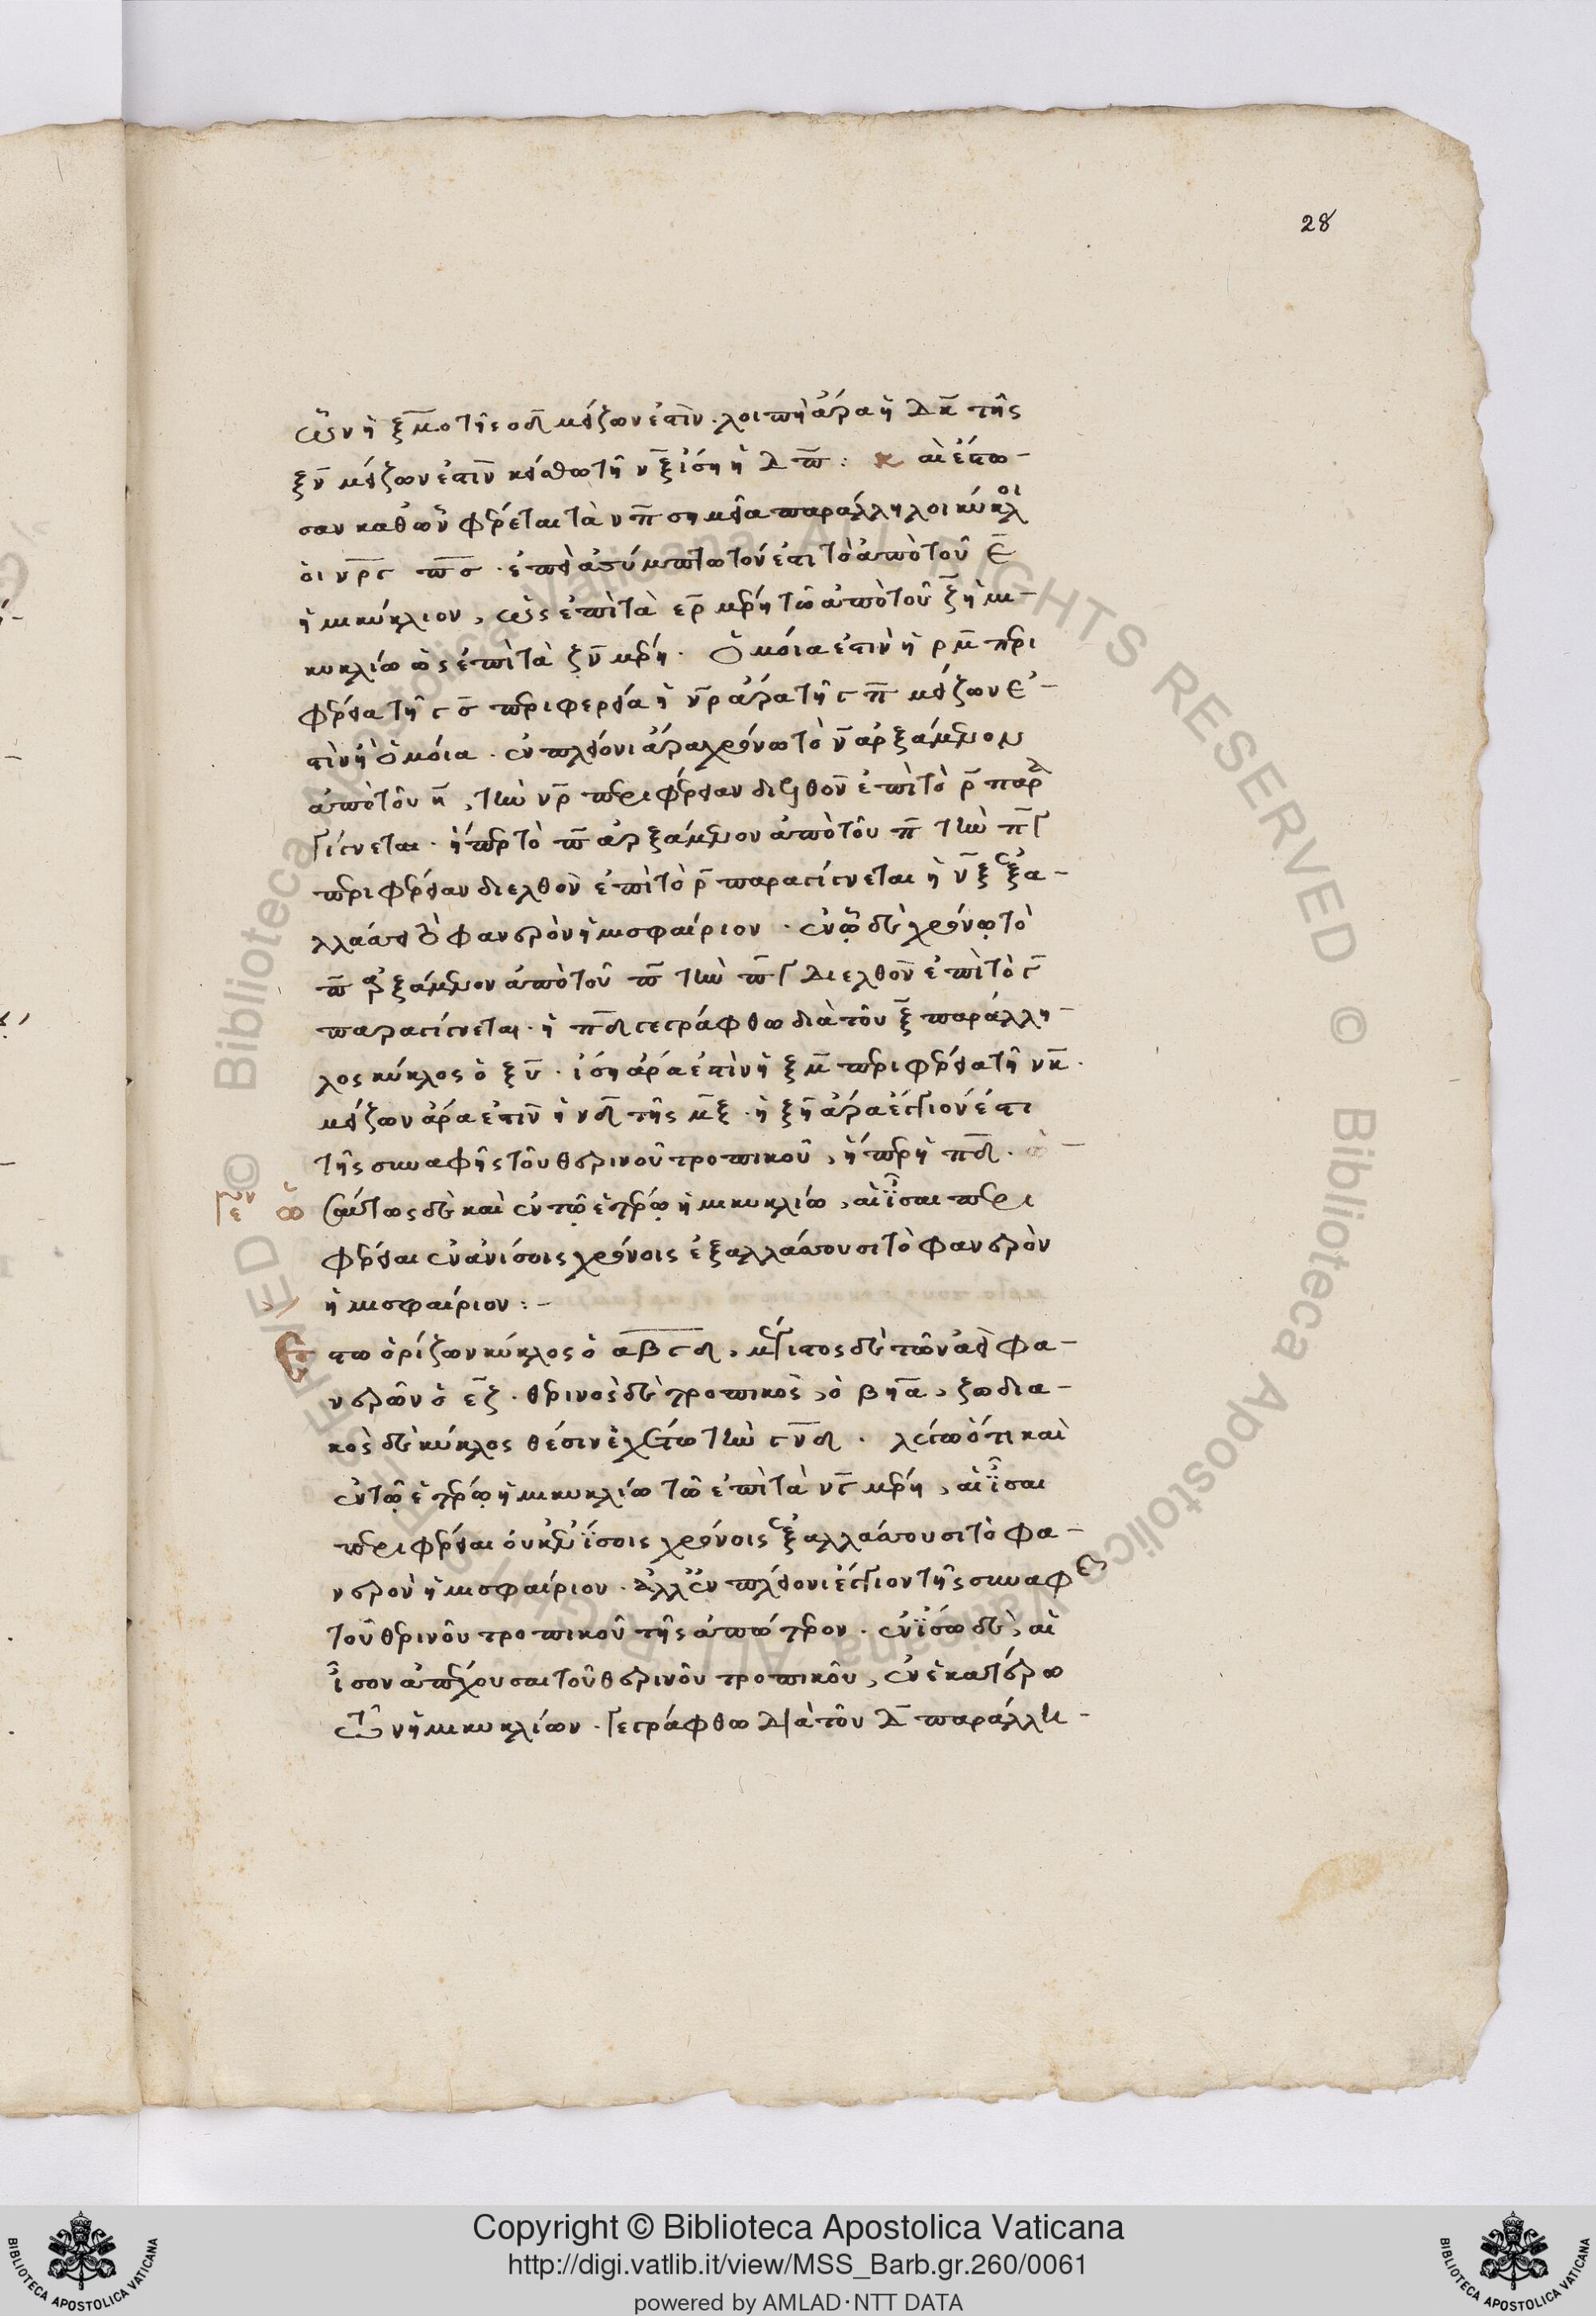 28
ὧν ἡ ξ̅μ̅ο τῆς ο̅δ̅ μείζων ἐστίν. λοιπὴ ἄρα ἡ λ̅κ̅ τῆς
ξ̅ν̅ μείζων ἐστιν κείσθω τῇ ν̅ξ̅ ἴση ἡ λ̅π̅: καὶ ἔστω-
σαν καθ' ὧν φέρεται τὰ ν̅π̅ σημεῖα παράλληλοι κύκλοι
οἱ ν̅ρ̅ς π̅σ̅. ἐπεὶ ἀσύμπτωτόν ἐστι τὸ ἀπὸ τοῦ ε̅
ἡμικύκλιον, ὡς ἐπὶ τὰ ε̅ρ̅ μέρη τῶ ἀπὸ τοῦ ζ̅ ἡμι-
κυκλίω ὡς ἐπὶ τὰ ζ̅ν̅ μέρη. ὁμοία ἐστὶν ἡ ρ̅μ̅ περι
φέρεια τῇ ς̅σ̅ περιφερεία ἡ ν̅ρ̅ ἄρα τῆς π̅ μείζων ἐ-
στὶν ἢ ὁμοία. ἐν πλείονι ἄρα χρόνω τὸ ν̅ ἀρξάμενον
ἀπὸ τοῦ ν̅, τὴν ν̅ρ̅ περιφέρειαν διελθὸν ἐπὶ τὸ ρ̅ παρα
γίνεται. ἤπερ τὸ π̅ ἀρξάμενον ἀπὸ τοῦ π̅ τὴν π̅γ̅
περιφέρειαν διελθὸν ἐπὶ τὸ ρ̅ παραγίνεται ἡ ν̅ξ̅ ἐξα-
λλάσσει τὸ φανερὸν ἡμισφαίριον. ἐν ᾧ δὲ χρόνῳ τὸ
π̅ ἀρξάμενον ἀπὸ τοῦ π̅ τὴν π̅γ̅ διελθὸν ἐπὶ τὸ γ̅
παραγίνεται. ἡ π̅δ̅ γεγράφθω διὰ τοῦ ξ̅ παράλλη-
λος κύκλος ὁ ξ̅υ̅. ἴση ἄρα ἐστὶν ἡ ξ̅μ̅ περιφέρεια τῇ ν̅κ̅.
μείζων ἄρα ἐστιν ἡ ν̅δ̅ τῆς μ̅ξ̅. ἡ ξ̅η̅ ἄρα ἔγγιον ἐστι
τῆς συναφῆς τοῦ θερινοῦ τροπικοῦ, ἤπερ ἡ π̅δ̅.
ὡσαύτως δὲ καὶ ἐν τῷ ἑτέρῳ ἡμικυκλίω, αἱ ἴσαι περι
φέρειαι ἐν ἀνίσοις χρόνοις ἐξαλλάσσουσι τὸ φανερὸν
ἡμισφαίριον:-
Ἔστω ὁρίζων κύκλος ὁ α̅β̅γ̅δ̅, μέγιστος δὲ τῶν ἀεὶ φα-
νερῶν ὁ ε̅ζ̅. θερινὸς δὲ τροπικὸς, ὁ β̅η̅α̅, ζωδια-
κὸς δὲ κύκλος θέσιν ἐχέτω τὴν γ̅ν̅δ̅. λέγω ὅτι καὶ
ἐν τῷ ἑτέρῳ ἡμικυκλίω τῶ ἐπὶ τὰ ν̅γ̅ μέρη, αἱ ἴσαι
περιφέρειαι οὐκ ἐν ἴσοις χρόνοις ἐξαλλάσσουσι τὸ φα-
νερὸν ἡμισφαίριον. ἀλλ' ἐν πλείονι ἔγγιον τῆς συναφῆς
τοῦ θερινοῦ τροπικοῦ τῆς ἀπώτερον. ἐν ἴσω δὲ, αἱ
ἴσον ἀπέχουσαι τοῦ θερινοῦ τροπικοῦ, ἐν ἑκατέρω
τῶν ἡμικυκλίων. γεγράφθω διὰ τοῦ λ̅ παράλλη-
Copyright © Biblioteca Apostolica Vaticana
http://digi.vatlib.it/view/MSS_Barb.gr.260/0061
powered by AMLAD·NTT DATA